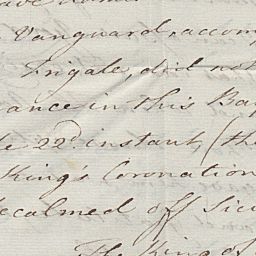 Vanguard, accom
Frigate, did not
ance in this Bay
22d. instant, (the
King's Coronation
becalmed off Sic
The King of